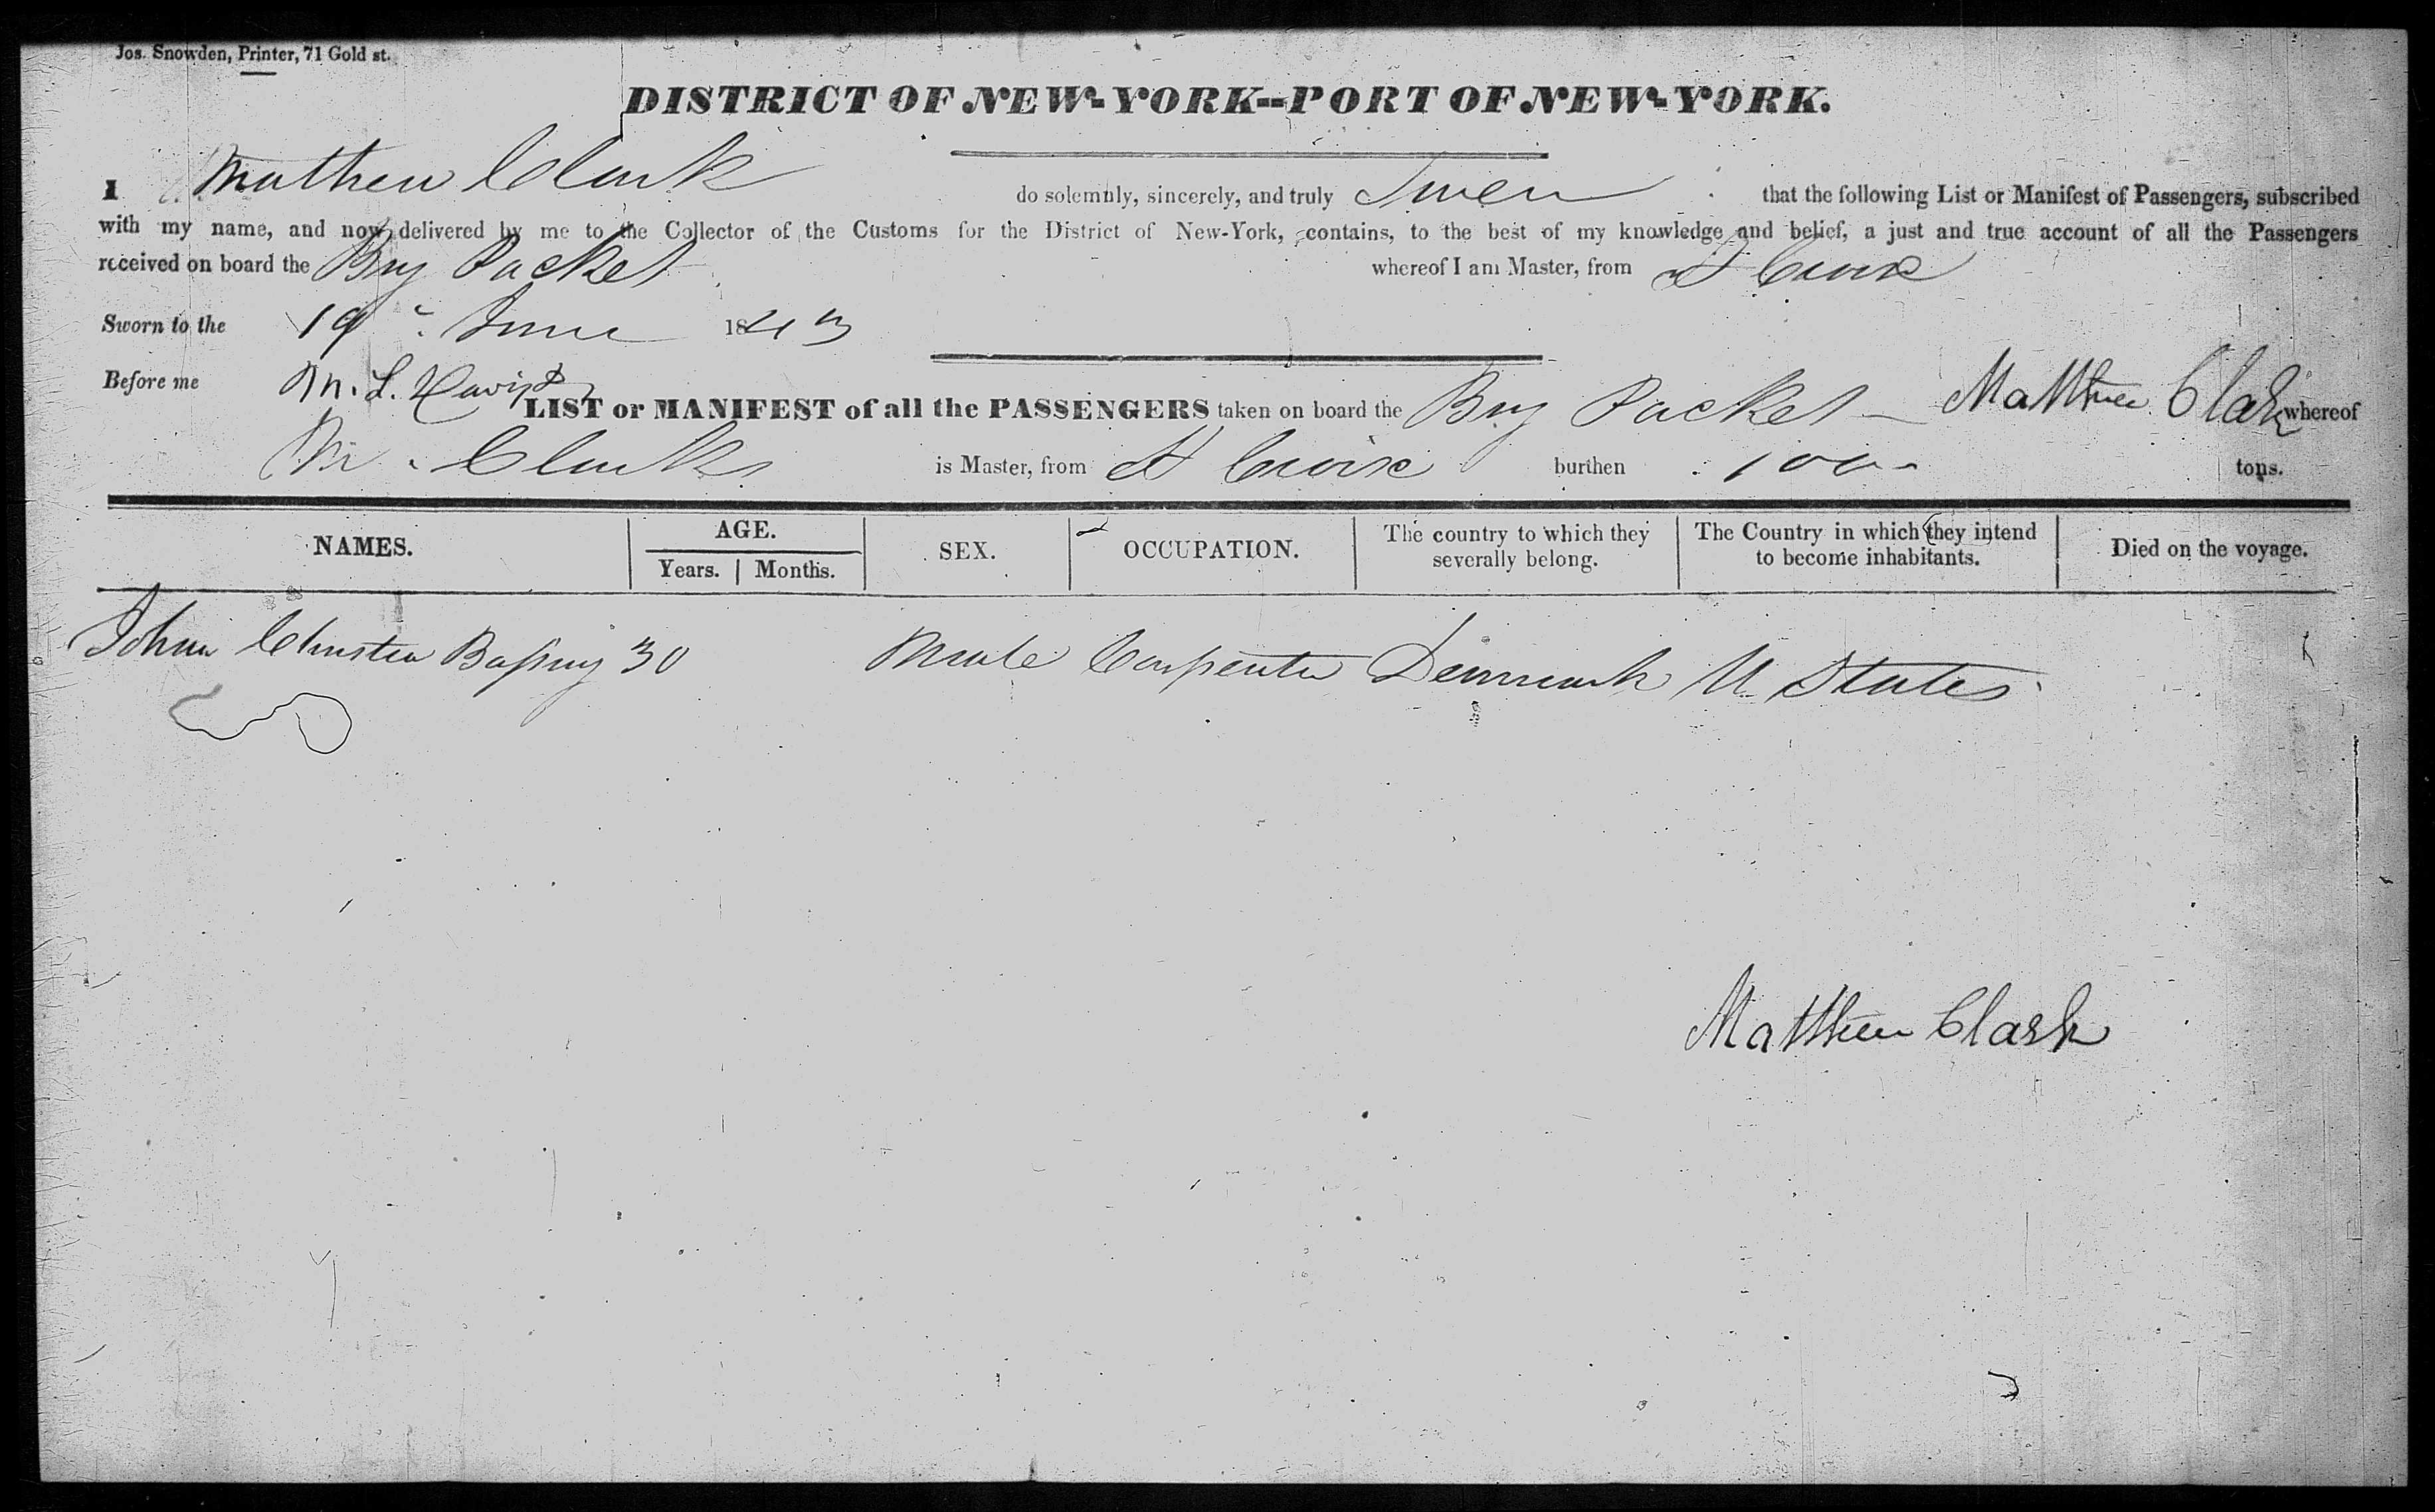 Jos. Snowden, Printer, 71 Gold st.
DISTRICT OF NEW-YORK--PORT OF NEW-YORK.
I Mathew Clark do solemnly, sincerely, and truly Swear that the following List or Manifest of Passengers, subscribed
with my name, and now delivered by me to the Collector of the Customs for the District of New-York, contains, to the best of my knowledge and belief, a just and true account of all the Passengers
received on board the Brig Packet whereof I am Master, from St Croix
Sworn to the 19 June 1843
Before me M. L. Davis Matthew Clark
LIST or MANIFEST of all the PASSENGERS taken on board the Brig Packet whereof
M. Clark is Master, from St Croix burthen 100 tons.
NAMES. AGE. Years. Months. SEX. OCCUPATION. The country to which they severally belong. The Country in which they intend to become inhabitants. Died on the voyage.
John 30 Male Carpenter Denmark U States
Matthew Clark